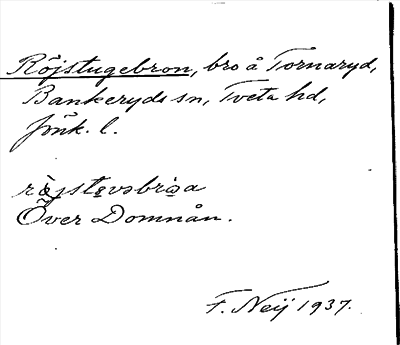 Röjstugebron, bro å Tornaryd,
Bankeryds sn, Tveta hd,
Jönk. l.
Över Domnån.
F. Neij 1937.